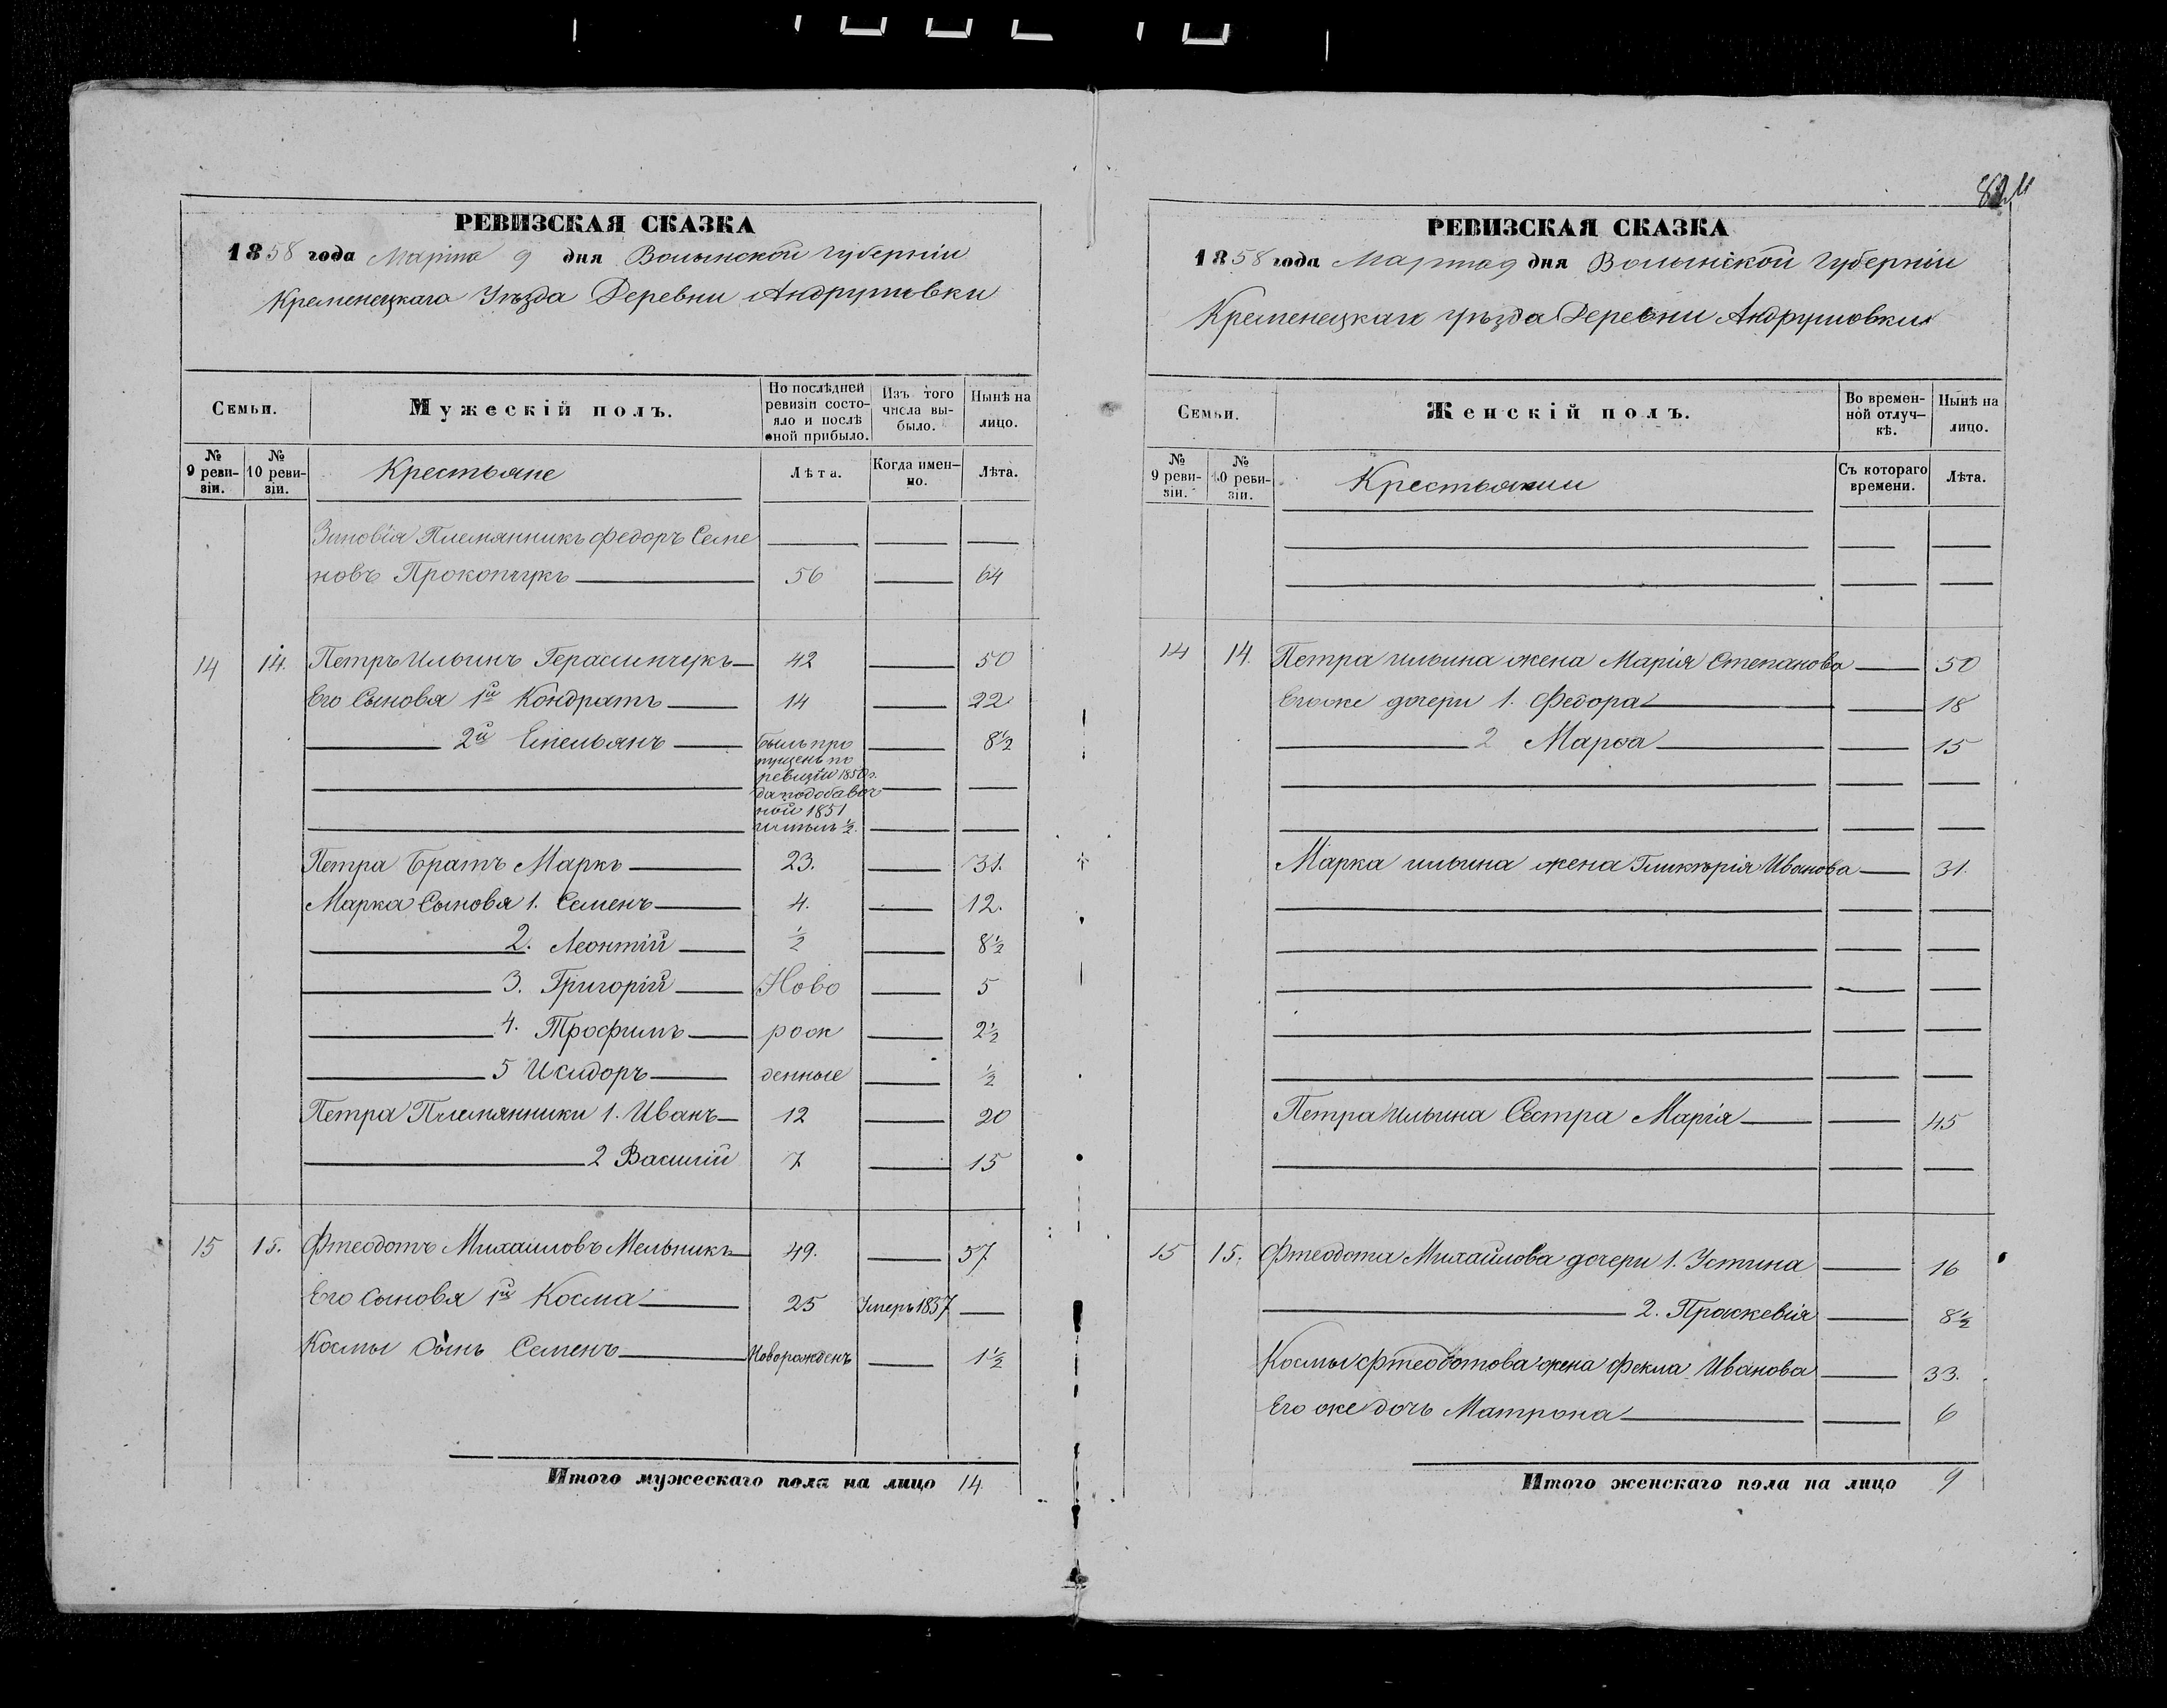 РЕВИЗСКАЯ СКАЗКА
1858 года Марта 9 дня Волынской губерніи
Кременецкаго Уѣзда Деревни Андрушовки
Семьи.
Мужескій полъ.
По послѣдней ревизіи состояло и послѣ оной прибыло.
Изъ того числа выбыло.
Нынѣ на лицо.
№ 9 ревизіи.
№ 10 ревизіи.
Крестьяне
Лѣта.
Когда именно.
Лѣта.
Зиновія Племянникъ Федоръ Семе
новъ Прокопчукъ 56 64
14 14. Петръ Ильинъ Герасимчукъ 42 50
Его Сыновя 1й Кондратъ 14 22
2й Емельянъ былъ про 8½
пущенъ по
ревизіи 1850 го
да по добавоч
ной 1851
½.
Петра Братъ Маркъ 23. 31.
Марка Сыновя 1. Семенъ 4. 12.
2. Леонтій ½ 8½
3. Григорій Ново 5
4. Трофимъ рож 2½
5 Исидоръ денные ½
Петра Племянники 1. Иванъ 12 20
2 Василій 7 15
15 15. Фтеодотъ Михаиловъ Мельникъ 49. 57
Его сыновя 1й Косма 25 Умеръ 1857
Космы Сынъ Семенъ Новорожденъ 1½
Итого мужескаго пола на лицо 14
РЕВИЗСКАЯ СКАЗКА
1858 года Марта 9 дня Волынской Губерніи
Кременецкаго уѣзда Деревни Андрушовки
Семьи.
Женскій полъ.
Во временной отлучкѣ.
Нынѣ на лицо.
№ 9 ревизіи.
№ 10 ревизіи.
Крестьянки
Съ котораго времени.
Лѣта.
14 14. Петра Ильина жена Марія Степанова 50
Егоже дочери 1. Федора 18
2 Марѳа 15
Марка ильина жена Гликѣрія Иванова 31.
Петра Ильина Сестра Марія 45
15 15. Фтеодота Михайлова дочери 1. Устина 16
2. Праскевія 8½
Космы Фтеодотова жена Фекла Иванова 33.
Его же дочь Матрона 6
Итого женскаго пола на лицо 9